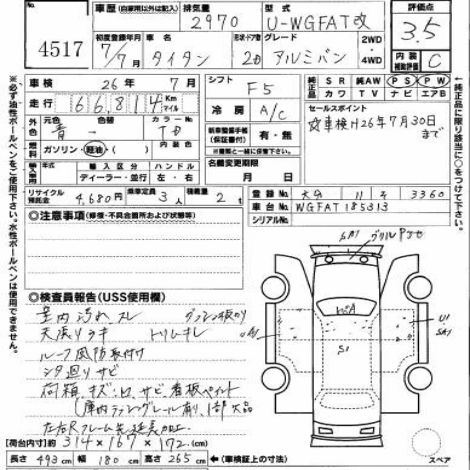 4517
車歴 (自家用以外は記入)
排気量 2970
型式 U-WGFAT改
評価点 3.5
初度登録年月 7/7
車名 タイタン
ドア 形状 2D
グレード アルミバン
2WD・4WD
内装補助評価 C
車検 26年 7月
シフト F5
純正品 SR 純AW PS PW
カワ TV ナビ エアB
走行 66,814 Km マイル
冷房 A/C
セールスポイント
車検H26年7月30日
まで
外色 元色 青 カラーNo.
内色
新車整備手帳(保証書付) 有・無
燃料 ガソリン・軽油・( )
輸入区分 ディーラー・並行
ハンドル 左・右
名義変更期限 月 日
リサイクル預託金 4,680円
乗車定員 3人
積載量 2t
登録No. 大分 11 そ 3360
車台No. WGFAT185313
シリアルNo.
○注意事項 (修復・不具合箇所および状態等)
○検査員報告 (USS使用欄)
室内汚れ スレ
天張りキ トリムキレ
ルーフ風防取付け
シタ廻りサビ
荷箱、キズ、凹、サビ、看板ペイント
(庫内ラッシングレール有り、1部欠品
左右Rフレーム先延長加工
(荷台内寸) 314×167×172cm
長さ 493cm 幅 180cm 高さ 265cm
(車検証上の寸法)
スペア
SA1
U1
SA1
S1
※必ず油性ボールペンをご使用下さい。水性ボールペンは使用できません。
←純正品に限り該当に○をつけて下さい。